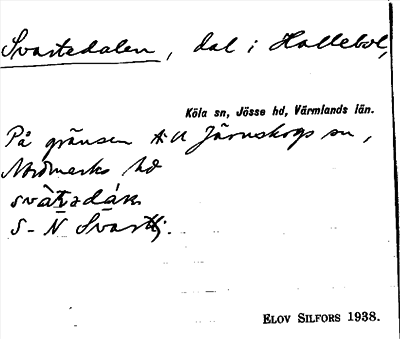 Svartedalen, dal i Hallebol,
Köla sn, Jösse hd, Värmlands län.
På gränsen till Järnskogs sn,
Nordmarks hd
S-N Svarttj.
ELOV SILFORS 1938.